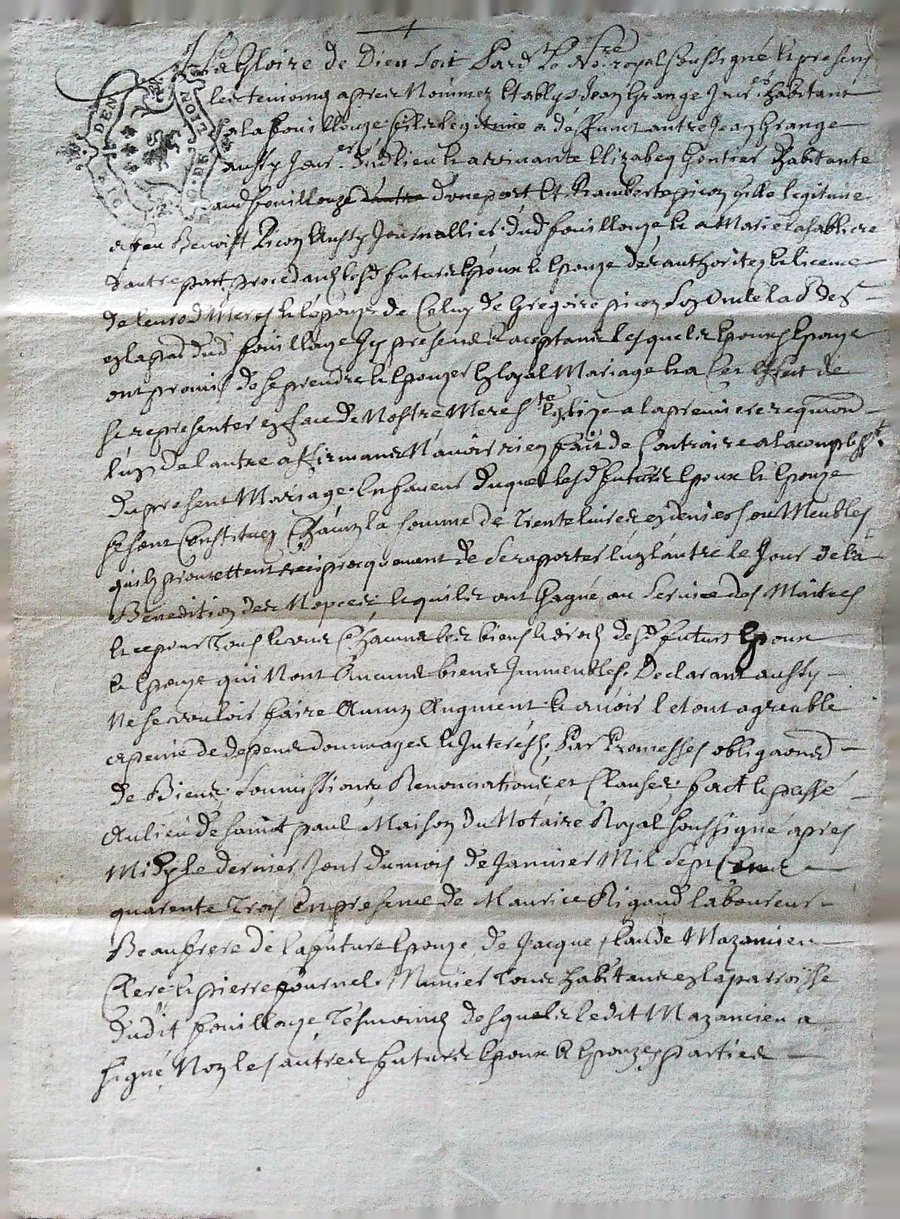 A la Gloire de Dieu soit Pard. Le No.re royal soussigné & presens
les temoins apres Nommez Etablys Jean Grange Jour.er habitant
a la fouillouze fils legitime a deffunct autre Jean Grange
aussy Jour.er dud lieu & a vivante Elizabeq Gontier habitante
aud fouillouze d'une part Et Ramberte picon fille legitime
a feu Benoist Picon Aussy Journallier dud fouillouze & a Marie
d'autre part procedant lesd futurs Epoux & Epouze des authoritez & licence
de leursd Meres & l'epouze de Celuy de Gregoire picon son Oncle
en la par dud fouillouze Icy present & aceptant Lesquels Epoux & Epouze
ont promis de se prendre & Epouzer En loyal Mariage & a Cet Effect de
se representer en face de Nostre Mere S.te Eglize a la premiere requi.on
l'un de l'autre affirmant N'avoir rien fait de Contraire a l'acomplisse.t
du present Mariage. En faveur duquel lesd futurs Epoux & Epouze
se sont Constituez Chacun la somme de Trente livres en deniers ou Meubles
qu'ils promettent reciproquement de se raporter l'un l'autre le Jour de la
Benedition des Nopces & quils ont Gagné au Service des Maitres
& ce pour Tous & uns Chacuns les biens & drois desd futurs Epoux
& Epouze qui N'ont Aucuns biens Immeubles. Declarant aussy
Ne se vouloir faire Aucun Augment & avoir l et ont agreable
a peine de depens dommages & Interests, Par Promesses obligaons
de Biens Soumissions Renonciations et Clauses fait & passé
Au lieu de Sainct paul Maison du Notaire Royal soussigné apres
Midy le dernier Jour du mois de Janvier Mil Sept Cens
quarente Trois En presence de Maurice Rigaud laboureur
Beaufrere de la future Epouze, de Jacque Claude Mazancieu
Clerc & pierre fournel Munier Tous habitans en la parroisse
dudit fouillouze Tesmoins desquels ledit Mazancieu a
signé Non les autres futurs Epoux & Epouze parties